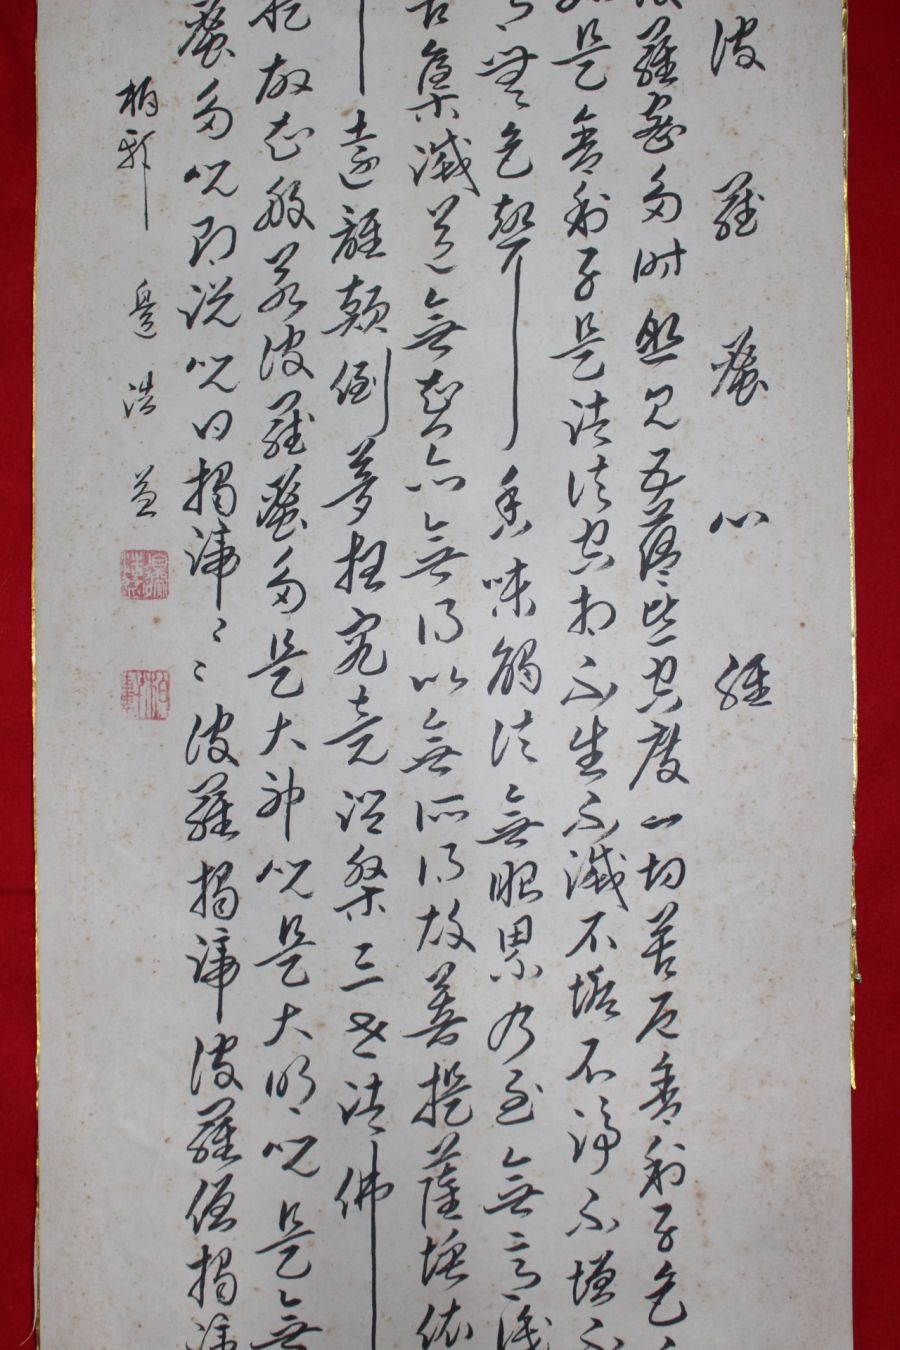 波羅蜜心經
羅蜜多時照見五蘊皆空度一切苦厄舍利子色
是舍利子是諸法空相不生不滅不垢不淨不增不
無色聲香味觸法無眼界乃至無意識
苦集滅道無智亦無得以無所得故菩提薩埵依
遠離顛倒夢想究竟涅槃三世諸佛
提故知般若波羅蜜多是大神呪是大明呪是無
蜜多呪即說呪曰揭諦〻〻波羅揭諦波羅僧揭諦
柏軒 浩